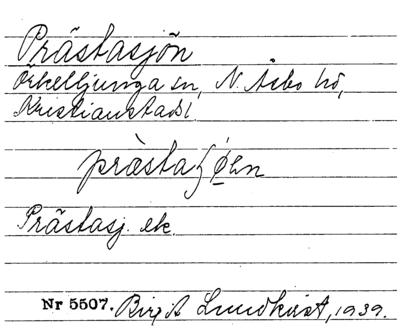 Prästasjön
Örkelljunga sn, N. Åsbo hd,
Kristianstads l.
Prästasj. ek.
Nr 5507. Birgit Lundkvist, 1939.